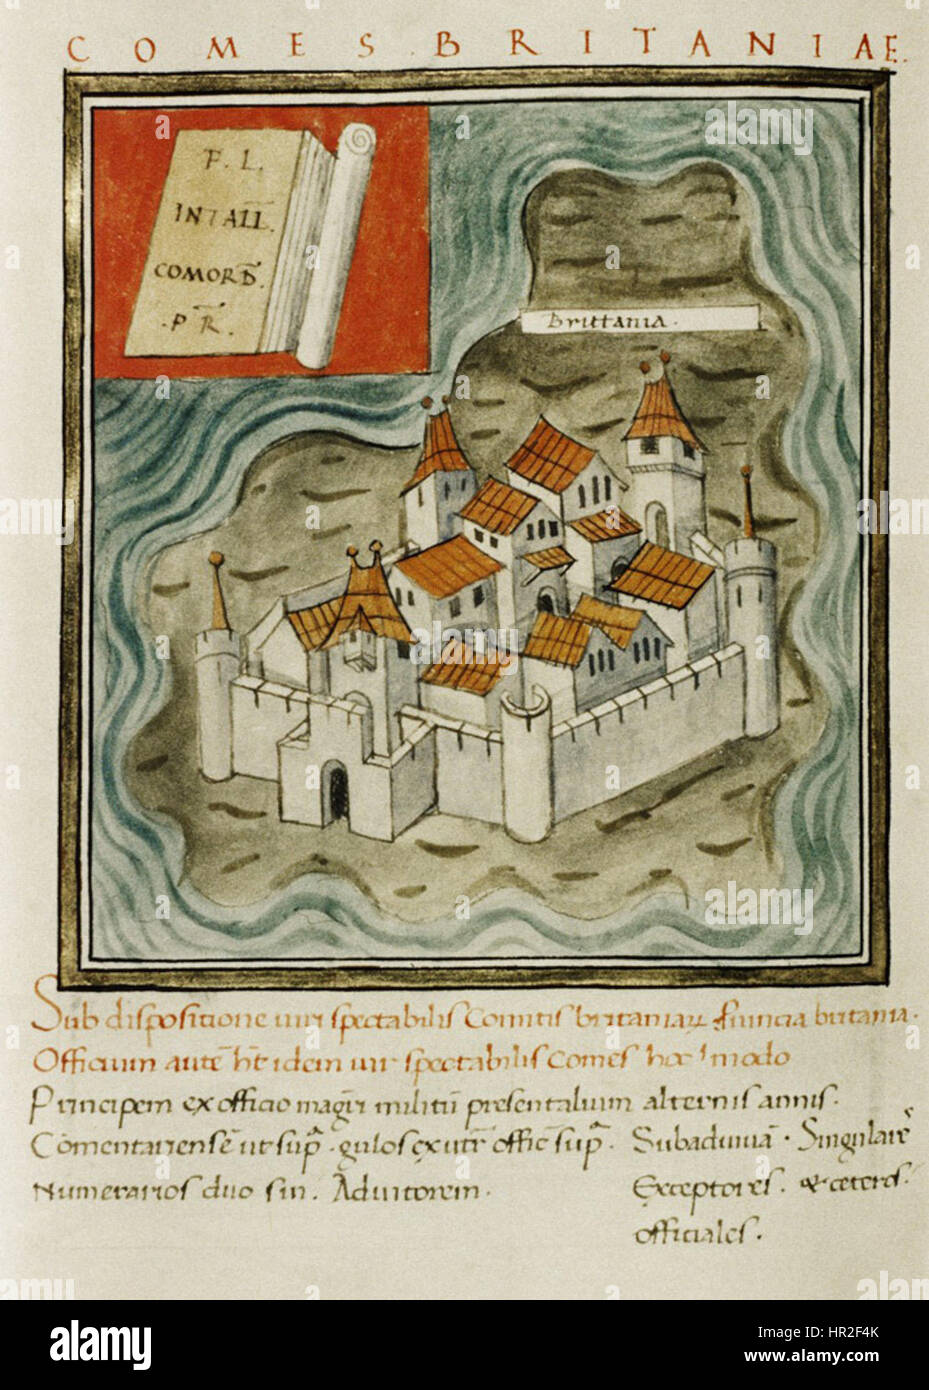 COMES. BRITANIAE.
F. L.
INTALL̅.
COMORD̅.
. P R̅ .
Brittania .
Sub dispositione viri spectabilis Comitis britaniaꝝ
britania.
Officium aute̅ h̅t idem vir spectabilis Comes hoc modo
Principem ex officio magr̅i militu̅ presentalium alternis annis.
Co̅mentariense̅ ut sup̅a .
Subadiuua̅ . Singulare̅s
Numerarios duo sin. Adiutorem .
Exceptores . & ceteros.
officiales .
alamy
Image ID: HR2F4K
www.alamy.com